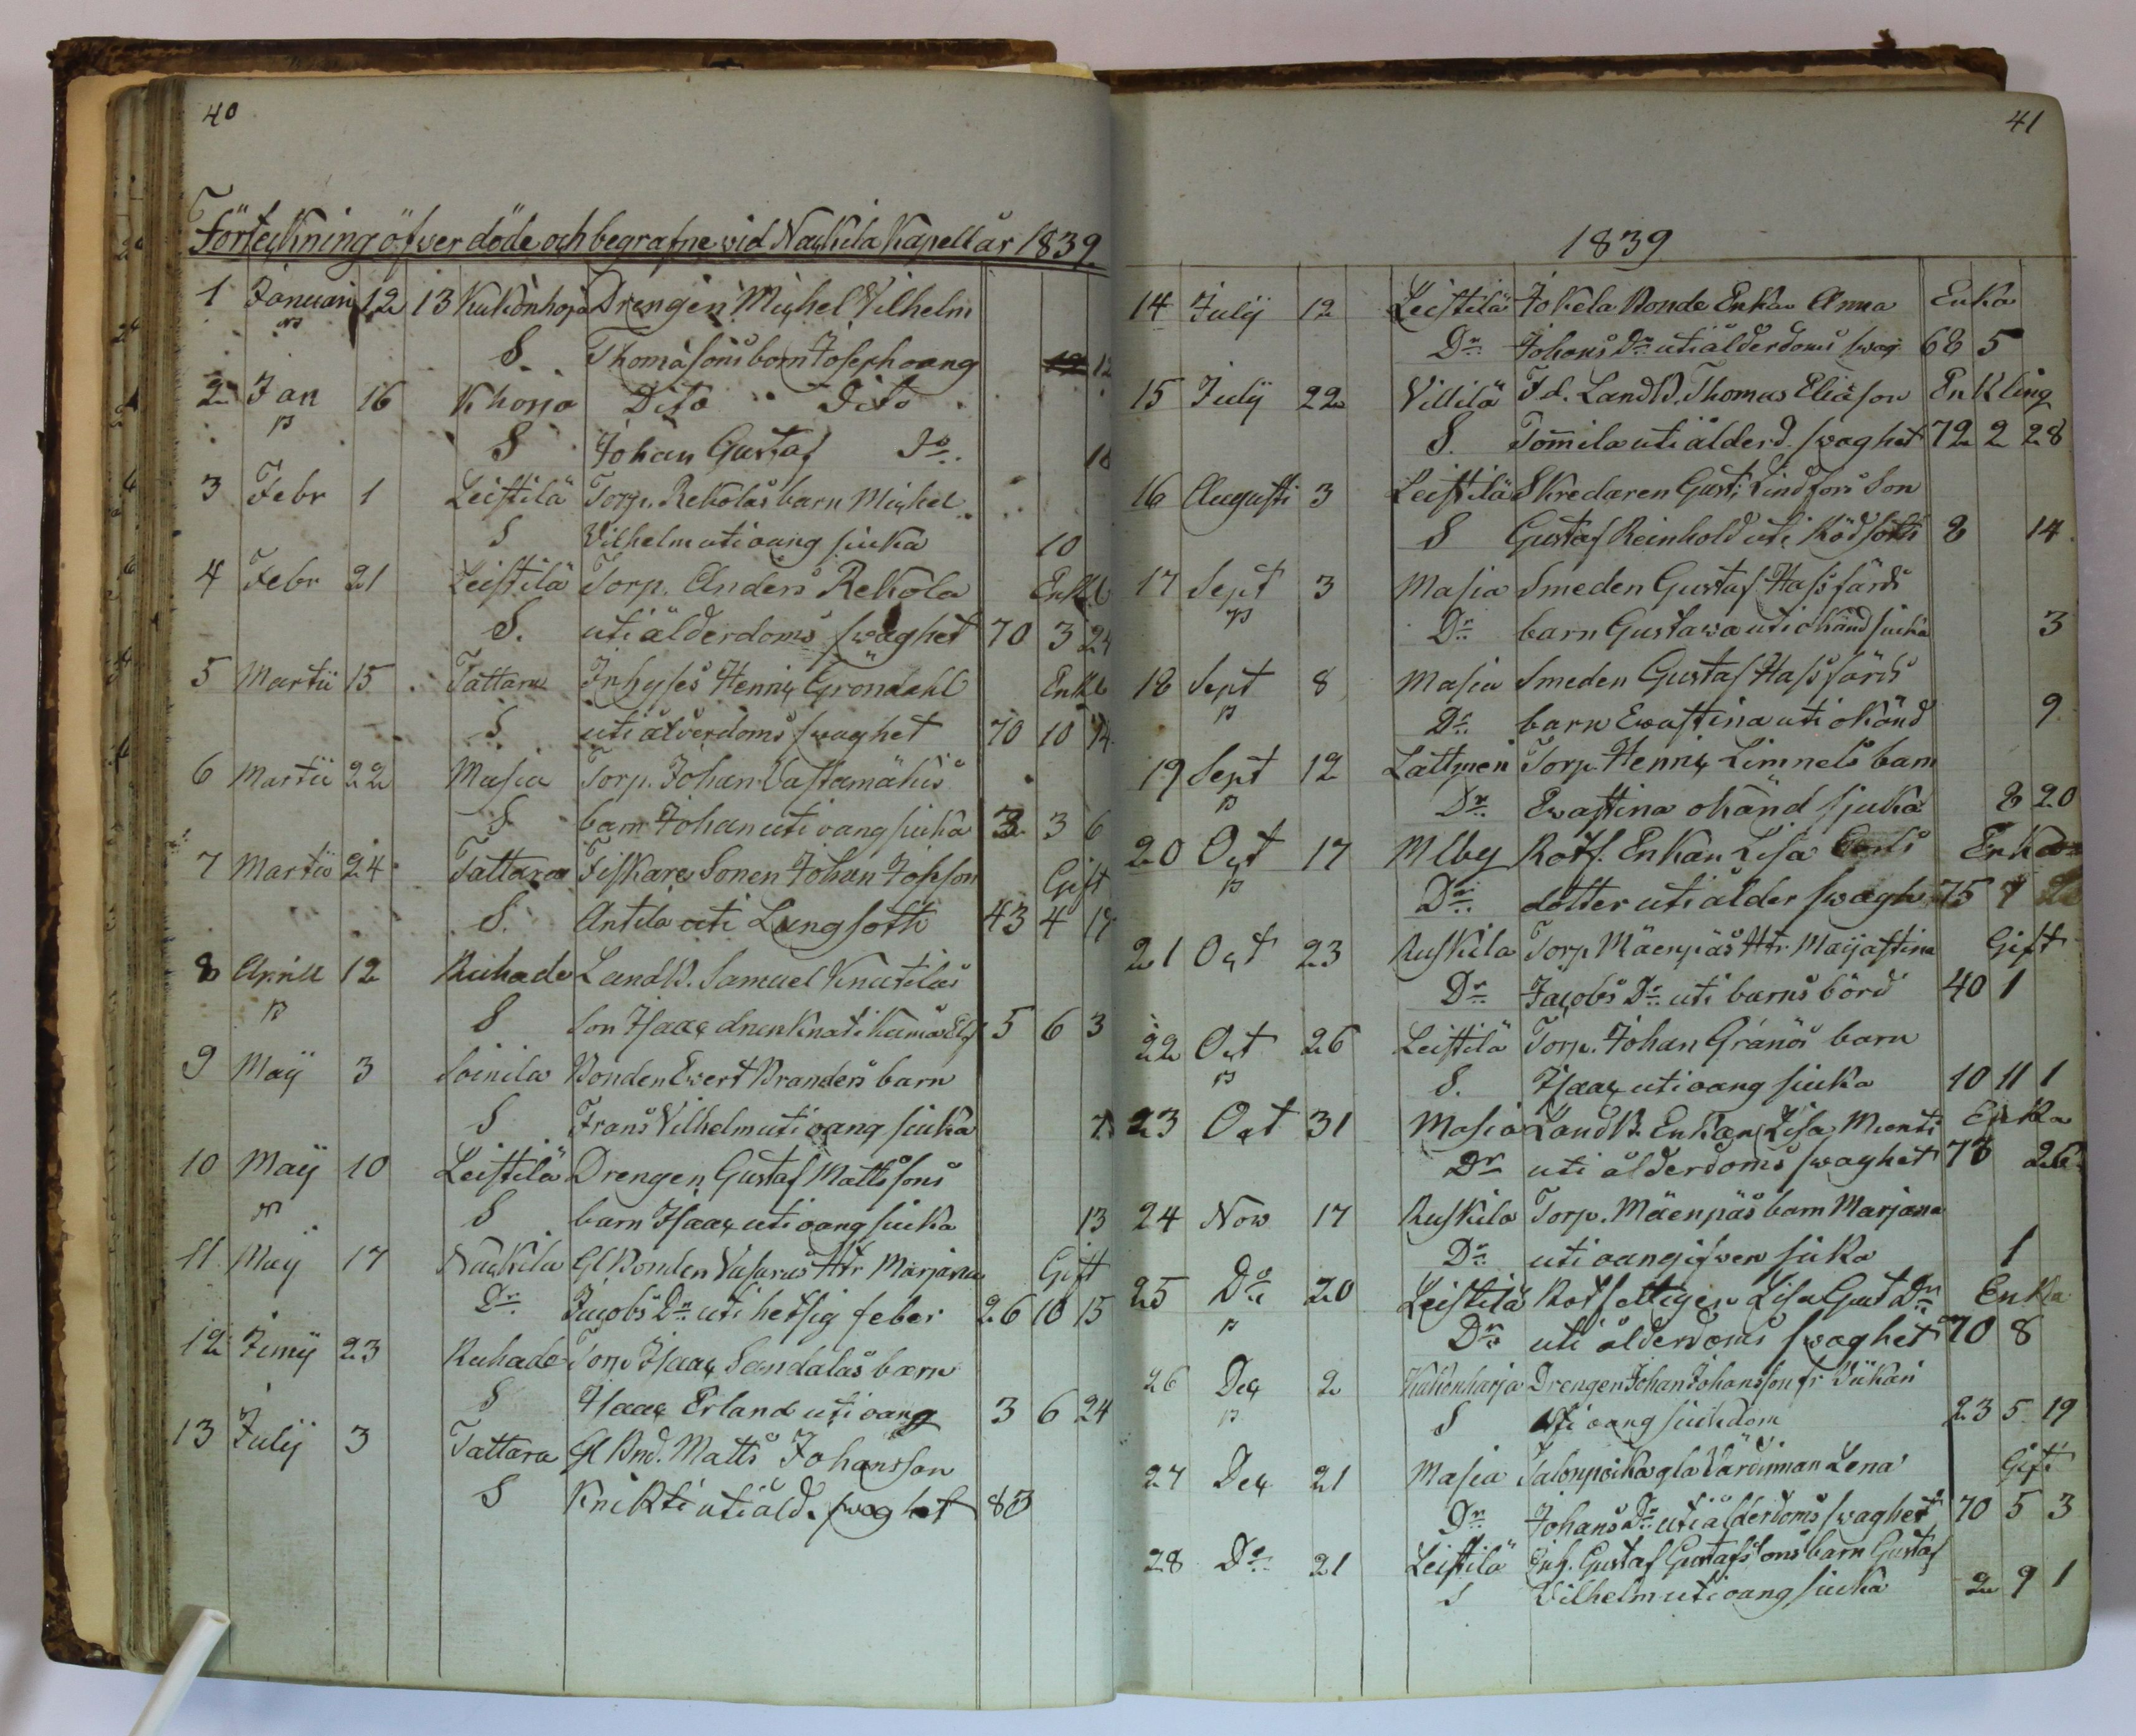 40
Förteckning öfwer döde och begrafne wid Nackila Kapell år 1839
1 Januari 12 13 Kukonhoja Drengen Michel Vilhelm
S. Thomasons barn Joseph oang 12
2 Jan 16 Khorja Dito Dito
S Johan Gustaf Do 18
3 Febr 1 Leistilä Torp. Rekolas barn Michel
S Vilhelm uti oang siuka 10
4 Febr 21 Leistilä Torp. Anders Rekola Enkl
S. uti ålderdoms swaghet 70 3 24
5 Martii 15 Tattara Inhyses Henric Gröndahl Enkl
S uti ålderdoms swaghet 70 10 14
6 Martii 22 Masia Torp. Johan Vastamäkis
S barn Johan uti oang siuka 3 6
7 Martii 24 Tattara Fiskare Sonen Johan Johsson Gift
S. Antila uti Lungsoth 43 4 19
8 Aprill 12 Ruhade LandB. Samuel Knutilas
S son Isaac 5 6 3
9 Maij 3 Soinila Bonden Evert Branders barn
S Frans Vilhelm uti oang siuka
10 Maij 10 Leistilä Drengen Gustaf Mattssons
S barn Isaac uti oang siuka 13
11 Maij 17 Nackila Gl Bonden Vasaras Htr Marjana Gift
Dr Jacobs Dr uti hetsig feber 26 10 15
12 Junij 23 Ruhade Torp Isaac Sandalas barn
S Isaac Erland uti oang 3 6 24
13 Julij 3 Tattara Gl Bnd. Matts Johansson
S Knikti uti åld. swaghet 83
41
1839
14 Julij 12 Leistilä Jokela Bonde Enkan Anna Enka
Dr Johans Dr uti ålderdoms swag 68 5
15 Julij 22 Villilä F.d. LandB. Thomas Eliäson Enkling
S. Tom̅ila uti ålderd. swaghet 72 2 28
16 Augusti 3 Leistilä Skredaren Gust. Lindfors Son
S Gustaf Reinhold uti Rödsoth 8 14
17 Sept 3 Masia Smeden Gustaf Hassfärds
Dr barn Gustawa uti okänd siuka 3
18 Sept 8 Masia Smeden Gustaf Hassfärds
Dr barn Ewastina uti okänd 9
19 Sept 12 Lattmen Torp. Henric Limnels barn
Dr Ewastina okänd sjuka 8 20
20 Oct 17 Mlby Rotf. Enkan Lisa Enka
Dr dotter uti ålder swagh 75 7
21 Oct 23 Ruskila Torp Mäenpäs Htr Maijastina Gift
Dr Jacobs Dr uti barns börd 40 1
22 Oct 26 Leistilä Torp. Johan Gränös barn
S. Isaac uti oang siuka 10 11 1
23 Oct 31 Masia LandB. Enkan Lisa Mienti Enka
Dr uti ålderdoms swaghet 78 26
24 Now 17 Ruskila Torp. Mäenpäs barn Marjana
Dr uti oangifwen siuka 1
25 Do 20 Leistilä Rotfattigen Lisa Gust Dr Enka
Dr uti ålderdoms swaghet 70 8
26 Dec 2 Kukonharja Drengen Johan Johansson fr
S uti oang siukdom 23 5 19
27 Dec 21 Masia Talonpoika gla Värdinnan Lena Gift
Dr Johans Dr uti ålderdoms swaghet 70 5 3
28 Do 21 Leistilä Inh. Gustaf Gustafssons barn Gustaf
S Vilhelm uti oang siuka 2 9 1